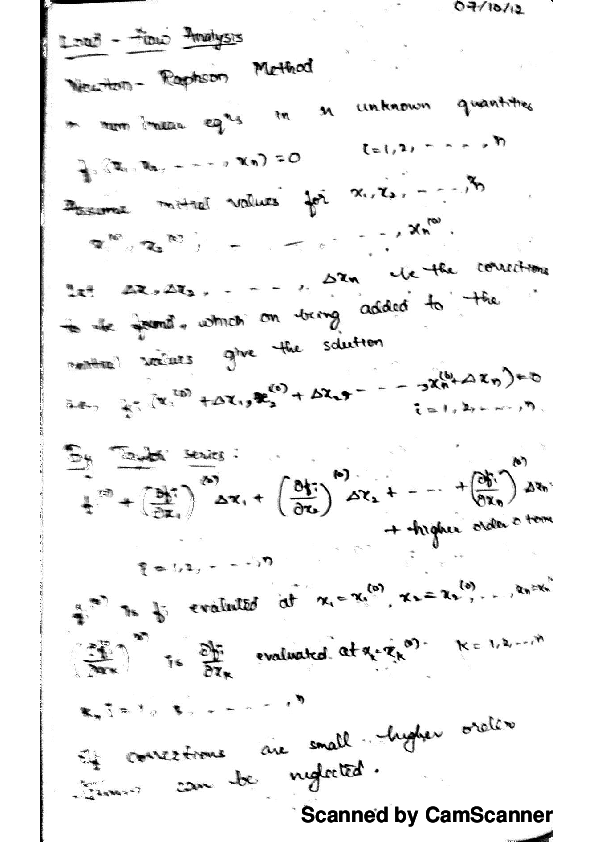 07/10/12
Load - Flow Analysis
Newton - Raphson Method
n non linear eqⁿs in n unknown quantities
fᵢ (x₁, x₂, - - - -, xₙ) = 0 i = 1, 2, - - - -, n
Assume initial values for x₁, x₂, - - - -, xₙ
x₁⁽⁰⁾, x₂⁽⁰⁾, - - - - -, xₙ⁽⁰⁾.
Let Δx₁, Δx₂, - - - -, Δxₙ be the corrections
to be found, which on being added to the
initial values give the solution
fᵢ (x₁⁽⁰⁾ + Δx₁, x₂⁽⁰⁾ + Δx₂, - - - -, xₙ⁽⁰⁾ + Δxₙ) = 0
i = 1, 2, - - -, n.
By Taylor series :
fᵢ⁽⁰⁾ + (∂fᵢ/∂x₁)⁽⁰⁾ Δx₁ + (∂fᵢ/∂x₂)⁽⁰⁾ Δx₂ + - - - + (∂fᵢ/∂xₙ)⁽⁰⁾ Δxₙ
+ higher order term
i = 1, 2, - - - -, n
fᵢ⁽⁰⁾ is fᵢ evaluated at x₁ = x₁⁽⁰⁾, x₂ = x₂⁽⁰⁾, - - -, xₙ = xₙ
(∂fᵢ/∂xₖ)⁽⁰⁾ is ∂fᵢ/∂xₖ evaluated at xₖ = xₖ⁽⁰⁾. k = 1, 2, - - -, n
i = 1, - - - - - -, n
If corrections are small higher order
terms can be neglected.
Scanned by CamScanner